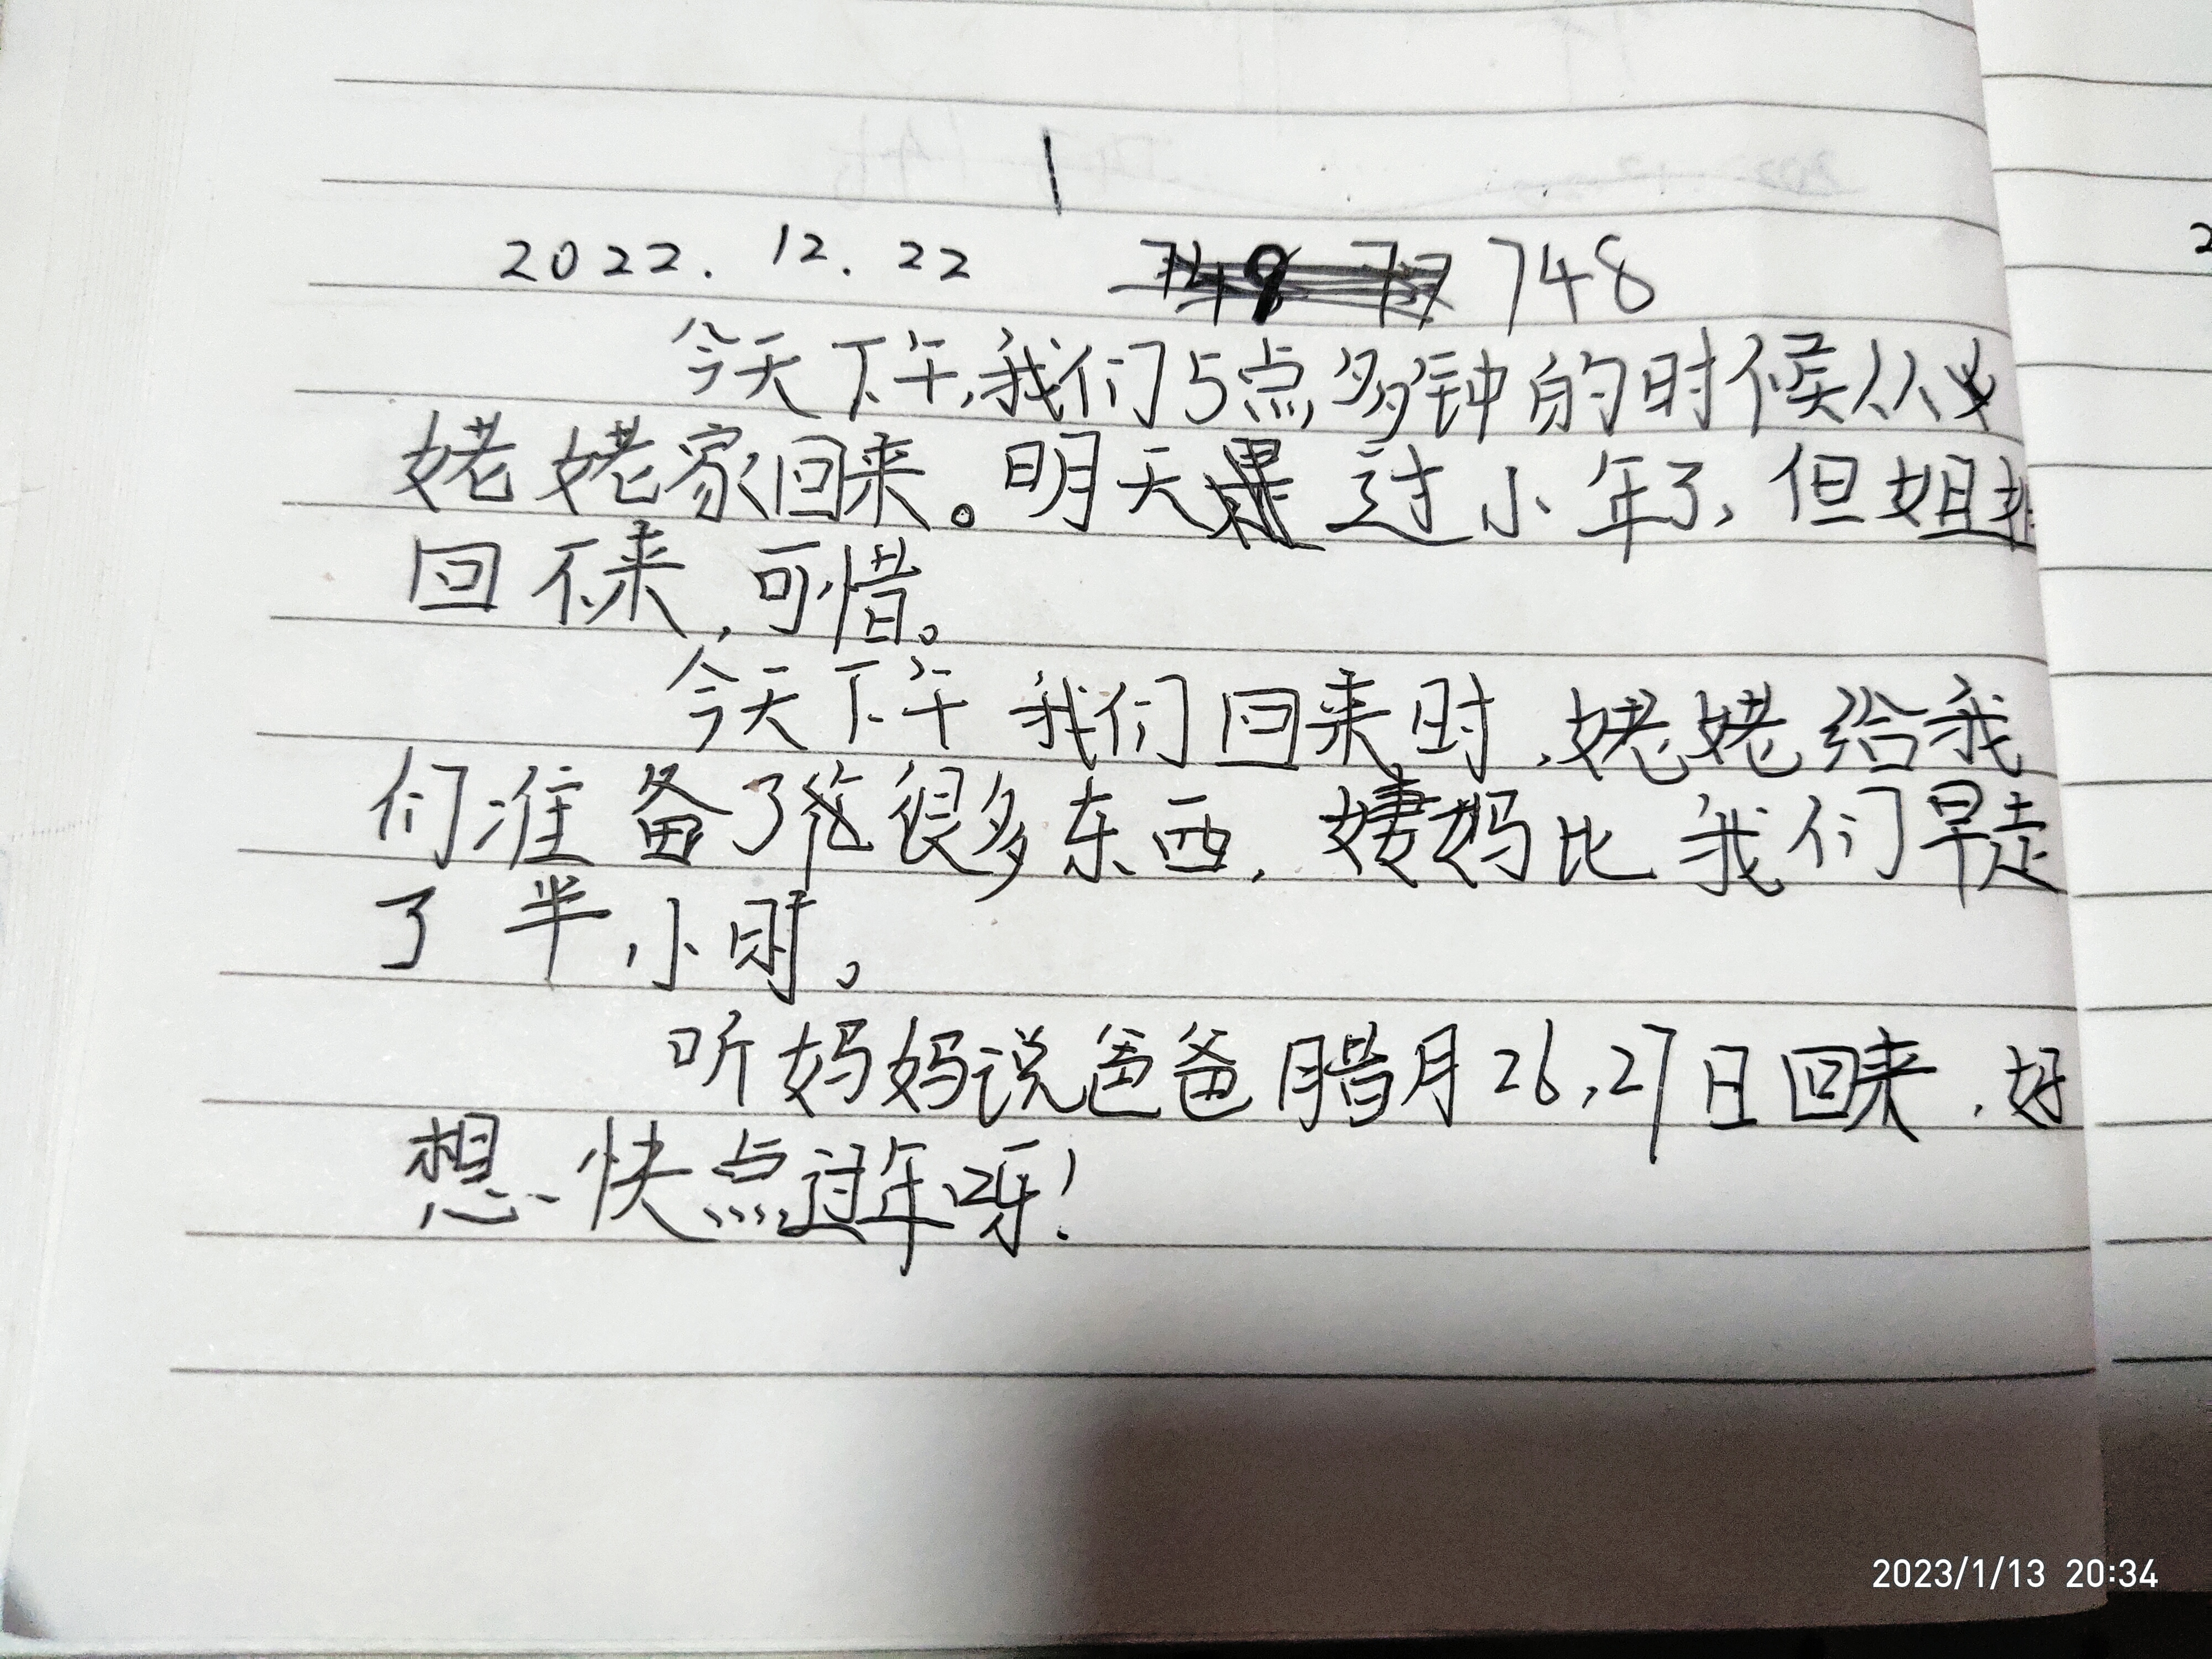 2022.12.22 748
今天下午,我们5点多钟的时候从
姥姥家回来。明天过小年了,但姐姐
回不来,可惜。
今天下午我们回来时,姥姥给我
们准备了很多东西,姨妈比我们早走
了半小时。
听妈妈说爸爸腊月26,27日回来,好
想快点过年呀!
2023/1/13 20:34